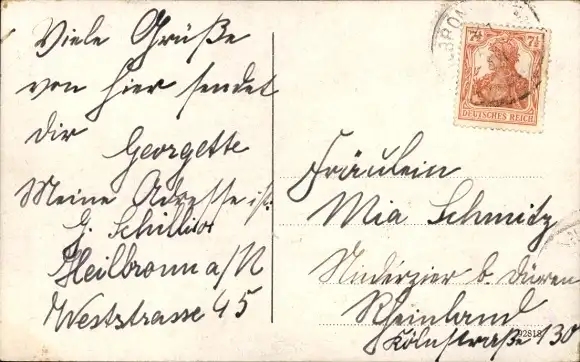 Viele Grüße
von hier sendet
dir Georgette
Meine Adresse ist:
G. Schillior
Heilbronn a/N
Weststrasse 45
7½ 7½
DEUTSCHES REICH
Fräulein
Mia Schmitz
Niederzier b. Düren
Rheinland
Kölnstraße 130
92818